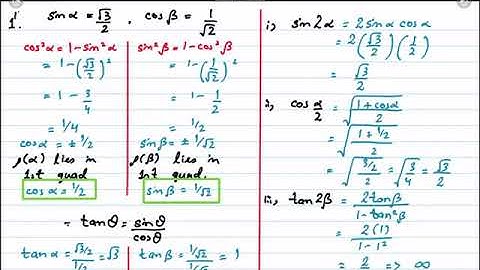 1. sinα = √3/2 , cosβ = 1/√2
cos²α = 1 - sin²α
= 1 - (√3/2)²
= 1 - 3/4
= 1/4
cosα = ± 1/2
ρ(α) lies in
1st quad
cosα = 1/2
sin²β = 1 - cos²β
= 1 - (1/√2)²
= 1 - 1/2
= 1/2
sinβ = ± 1/√2
ρ(β) lies in
1st quad.
sinβ = 1/√2
= tanθ = sinθ/cosθ
tanα = √3/2 / 1/2 = √3
tanβ = 1/√2 / 1/√2 = 1
i, sin2α = 2 sinα cosα
= 2(√3/2)(1/2)
= √3/2
ii, cos α/2 = √(1+cosα / 2)
= √(1+1/2 / 2)
= √(3/2 / 2) = √(3/4) = √3/2
iii, tan2β = 2tanβ / 1-tan²β
= 2(1) / 1-1²
= 2 => ∞